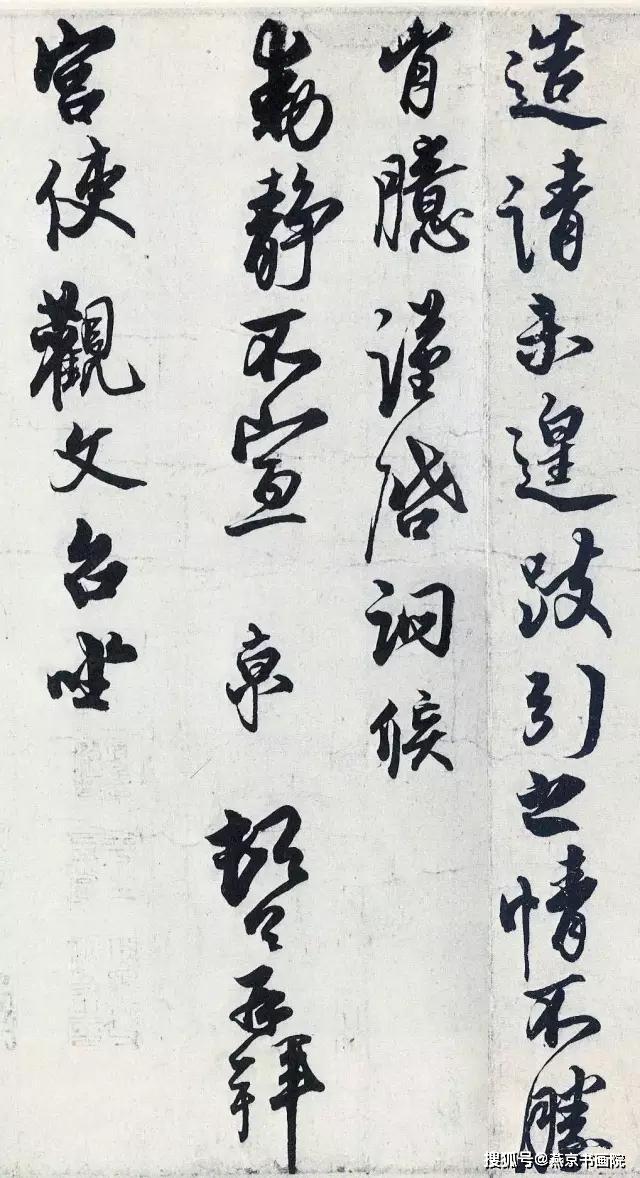 造请未遑跂引之情不胜
肯臆谨启词候
動静不宣　京　頓首再拜
宫使觀文台坐
搜狐号@燕京书画院